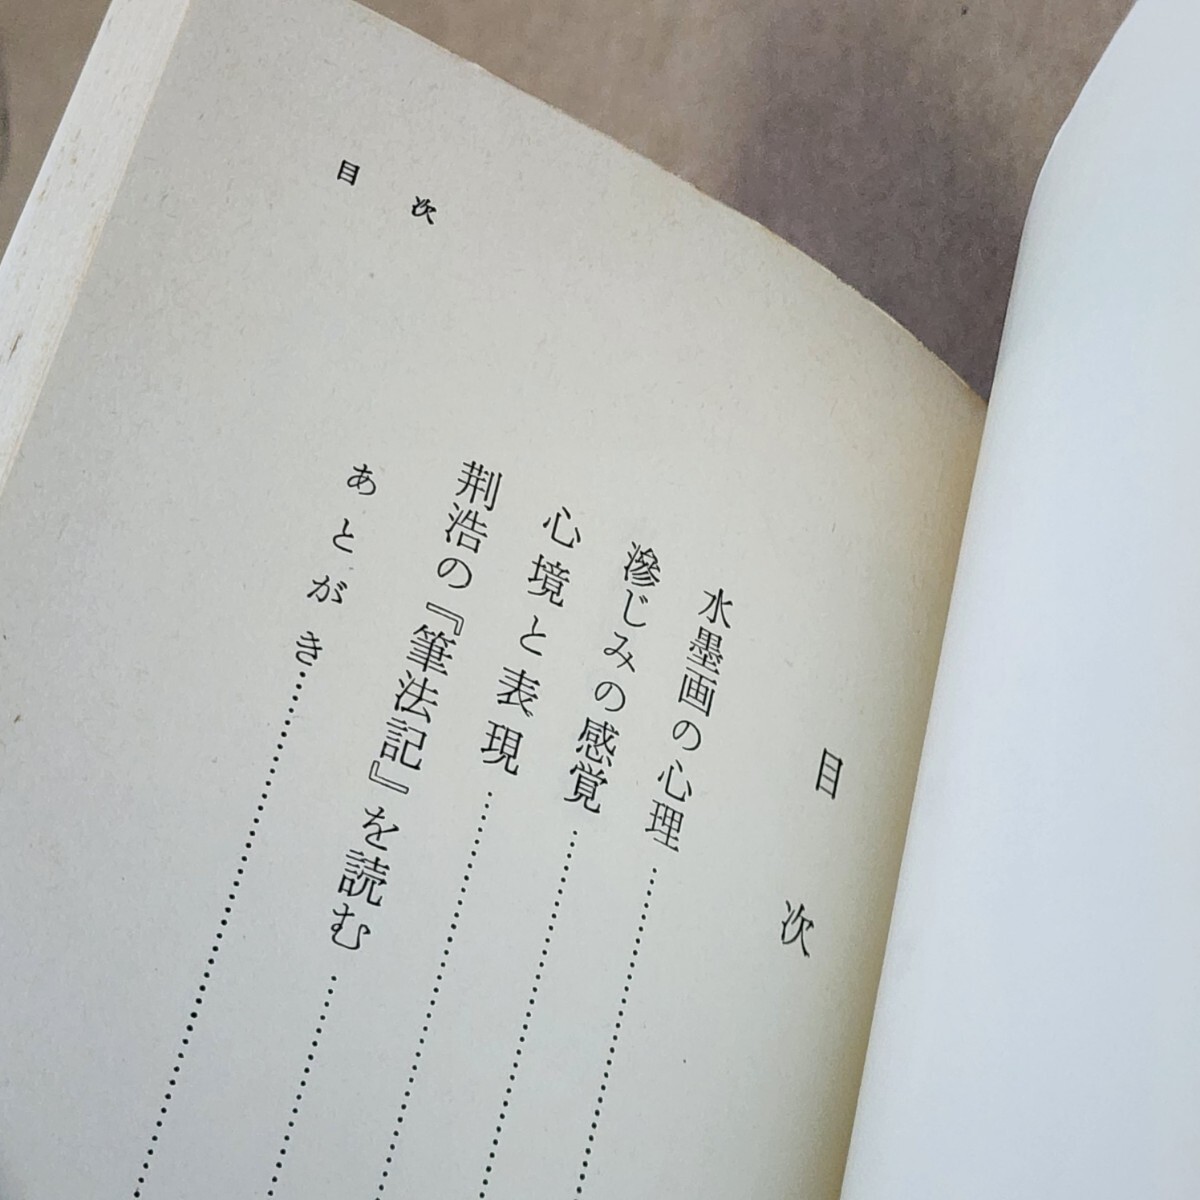 目次
目次
水墨画の心理
滲じみの感覚
心境と表現
荆浩の『筆法記』を読む
あとがき